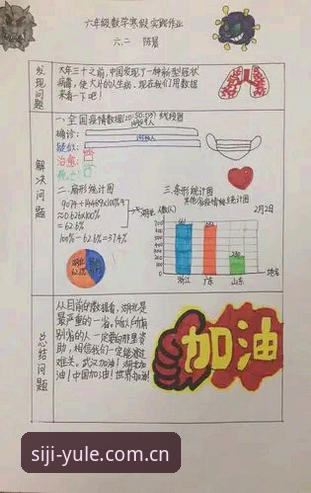 六年级数学寒假实践作业
六.二
发现问题
大年三十之前,中国发现了一种新型冠状
病毒,使大片的人生病,现在我们用数据
来看一下吧!
解决问题
一.全国疫情数据(20:50:09)线段图
14489人
确诊:
19544人
疑似:
治愈:
死亡:
二.扇形统计图
9074÷14489×100%
≈0.626×100%
=62.6%
100%-62.6%=37.4%
湖北
三.条形统计图
其他省疫情条统计图
人数(人)
2月2日
661
632
230
浙江
广东
山东
地名
总结问题
从目前的数据看,湖北是
最严重的一省。所以所有
别省的人一定要向那里资
助,相信我们一定能渡过
难关。武汉加油!湖北加
油!中国加油!世界加油!
加油
siji-yule.com.cn